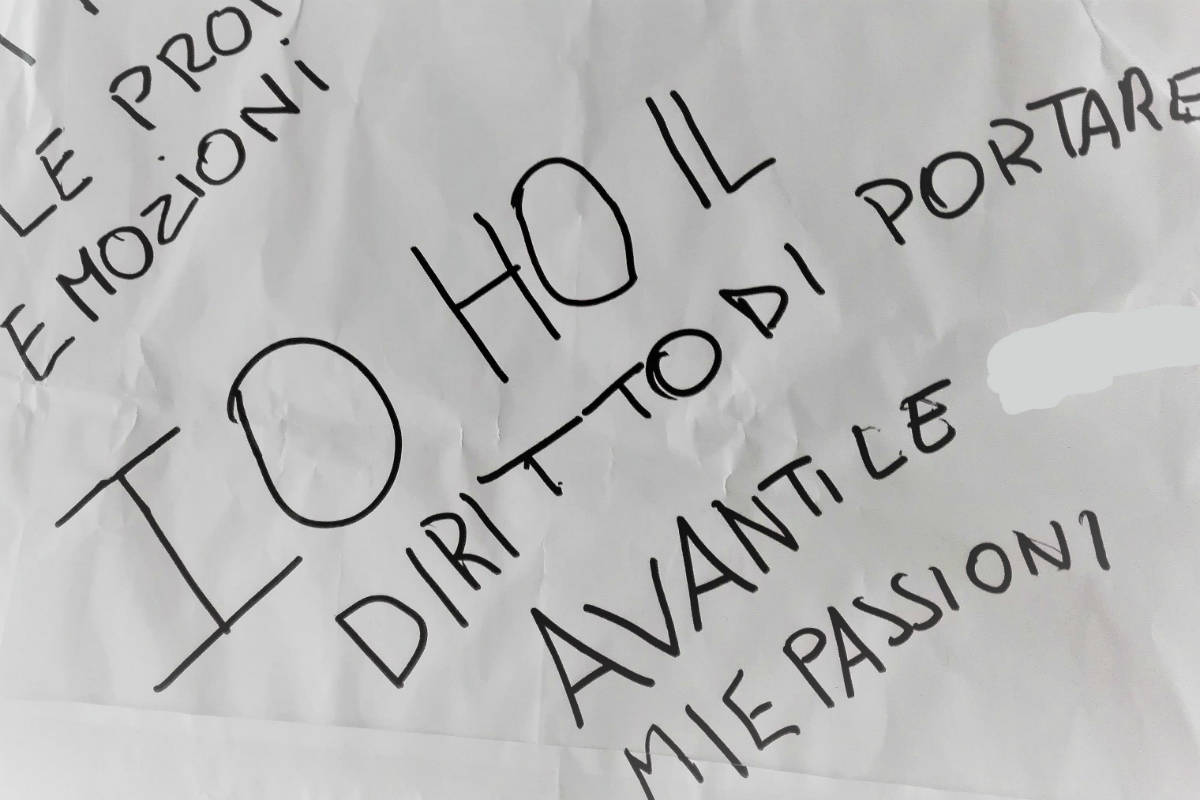 LE
EMOZIONI
IO HO IL
DIRITTO DI PORTARE
AVANTI LE
MIE PASSIONI